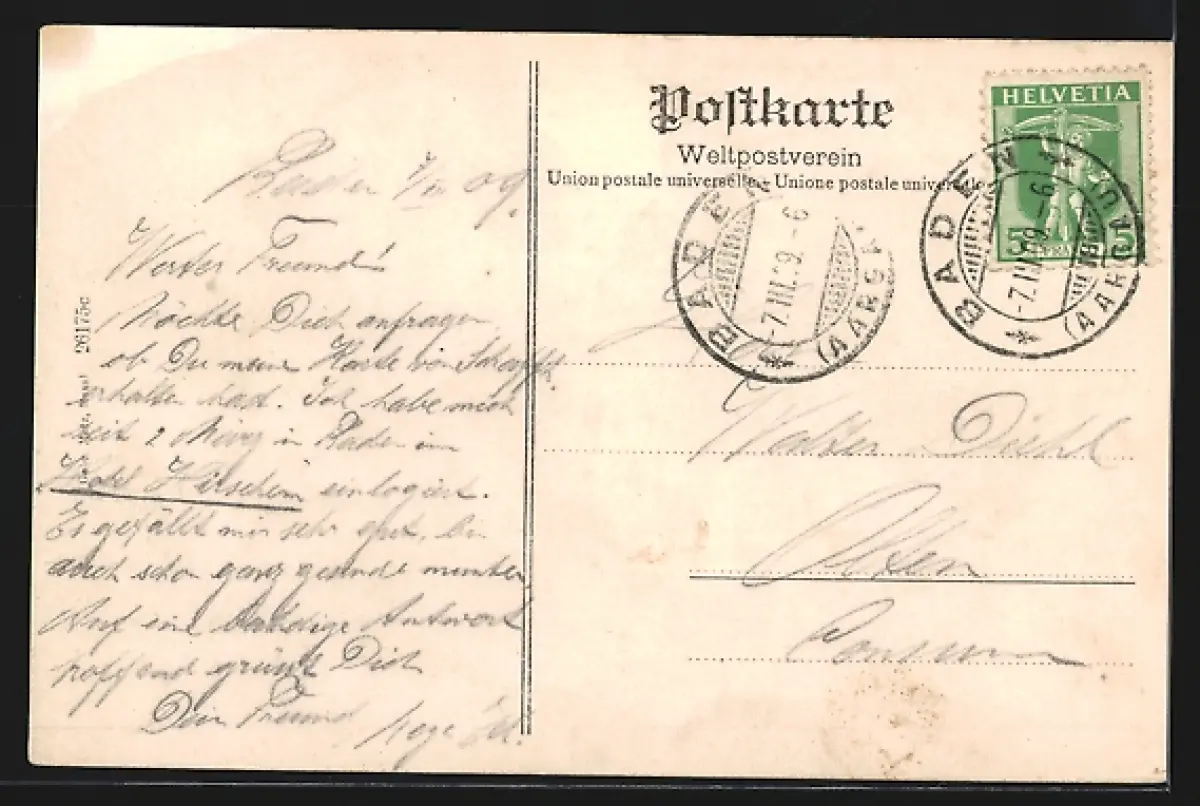 Baden 7/III 09.
Werter Freund!
Möchte Dich anfragen
ob Du meine Karte von
erhalten hast. Ich habe mich
seit 2 März in Baden im
Hotel einlogiert.
Es gefällt mir sehr gut, bin
auch schon ganz gesund munter
Auf eine baldige Antwort
hoffend grüsst Dich
Dein Freund
26175c
Postkarte
Weltpostverein
Union postale universelle. - Unione postale universale
HELVETIA
5 5
BADEN
-7.III.09.-6
(AARGAU)
BADEN
-7.III.09.-6
(AARGAU)
Walter Diehl
Olten
Consum